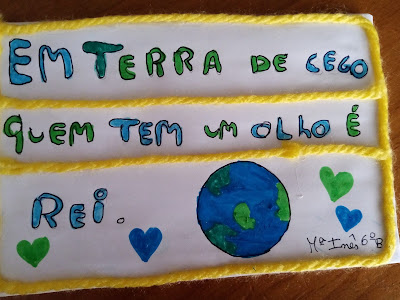 EM TERRA DE CEGO
QUEM TEM UM OLHO É
REI.
Mª Inês 6ºB